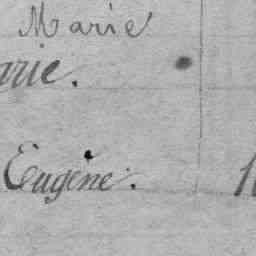 Marie
arie.
Eugène.